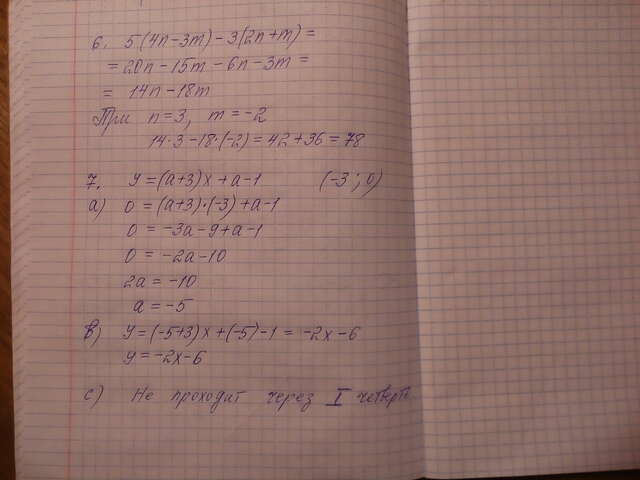 6. 5(4n-3m)-3(2n+m)=
=20n-15m-6n-3m=
= 14n-18m
При n=3, m=-2
14·3-18·(-2)=42+36=78
7. y=(a+3)x+a-1 (-3; 0)
a) 0=(a+3)·(-3)+a-1
0=-3a-9+a-1
0=-2a-10
2a=-10
a=-5
в) y=(-5+3)x+(-5)-1=-2x-6
y=-2x-6
c) Не проходит через I четверть